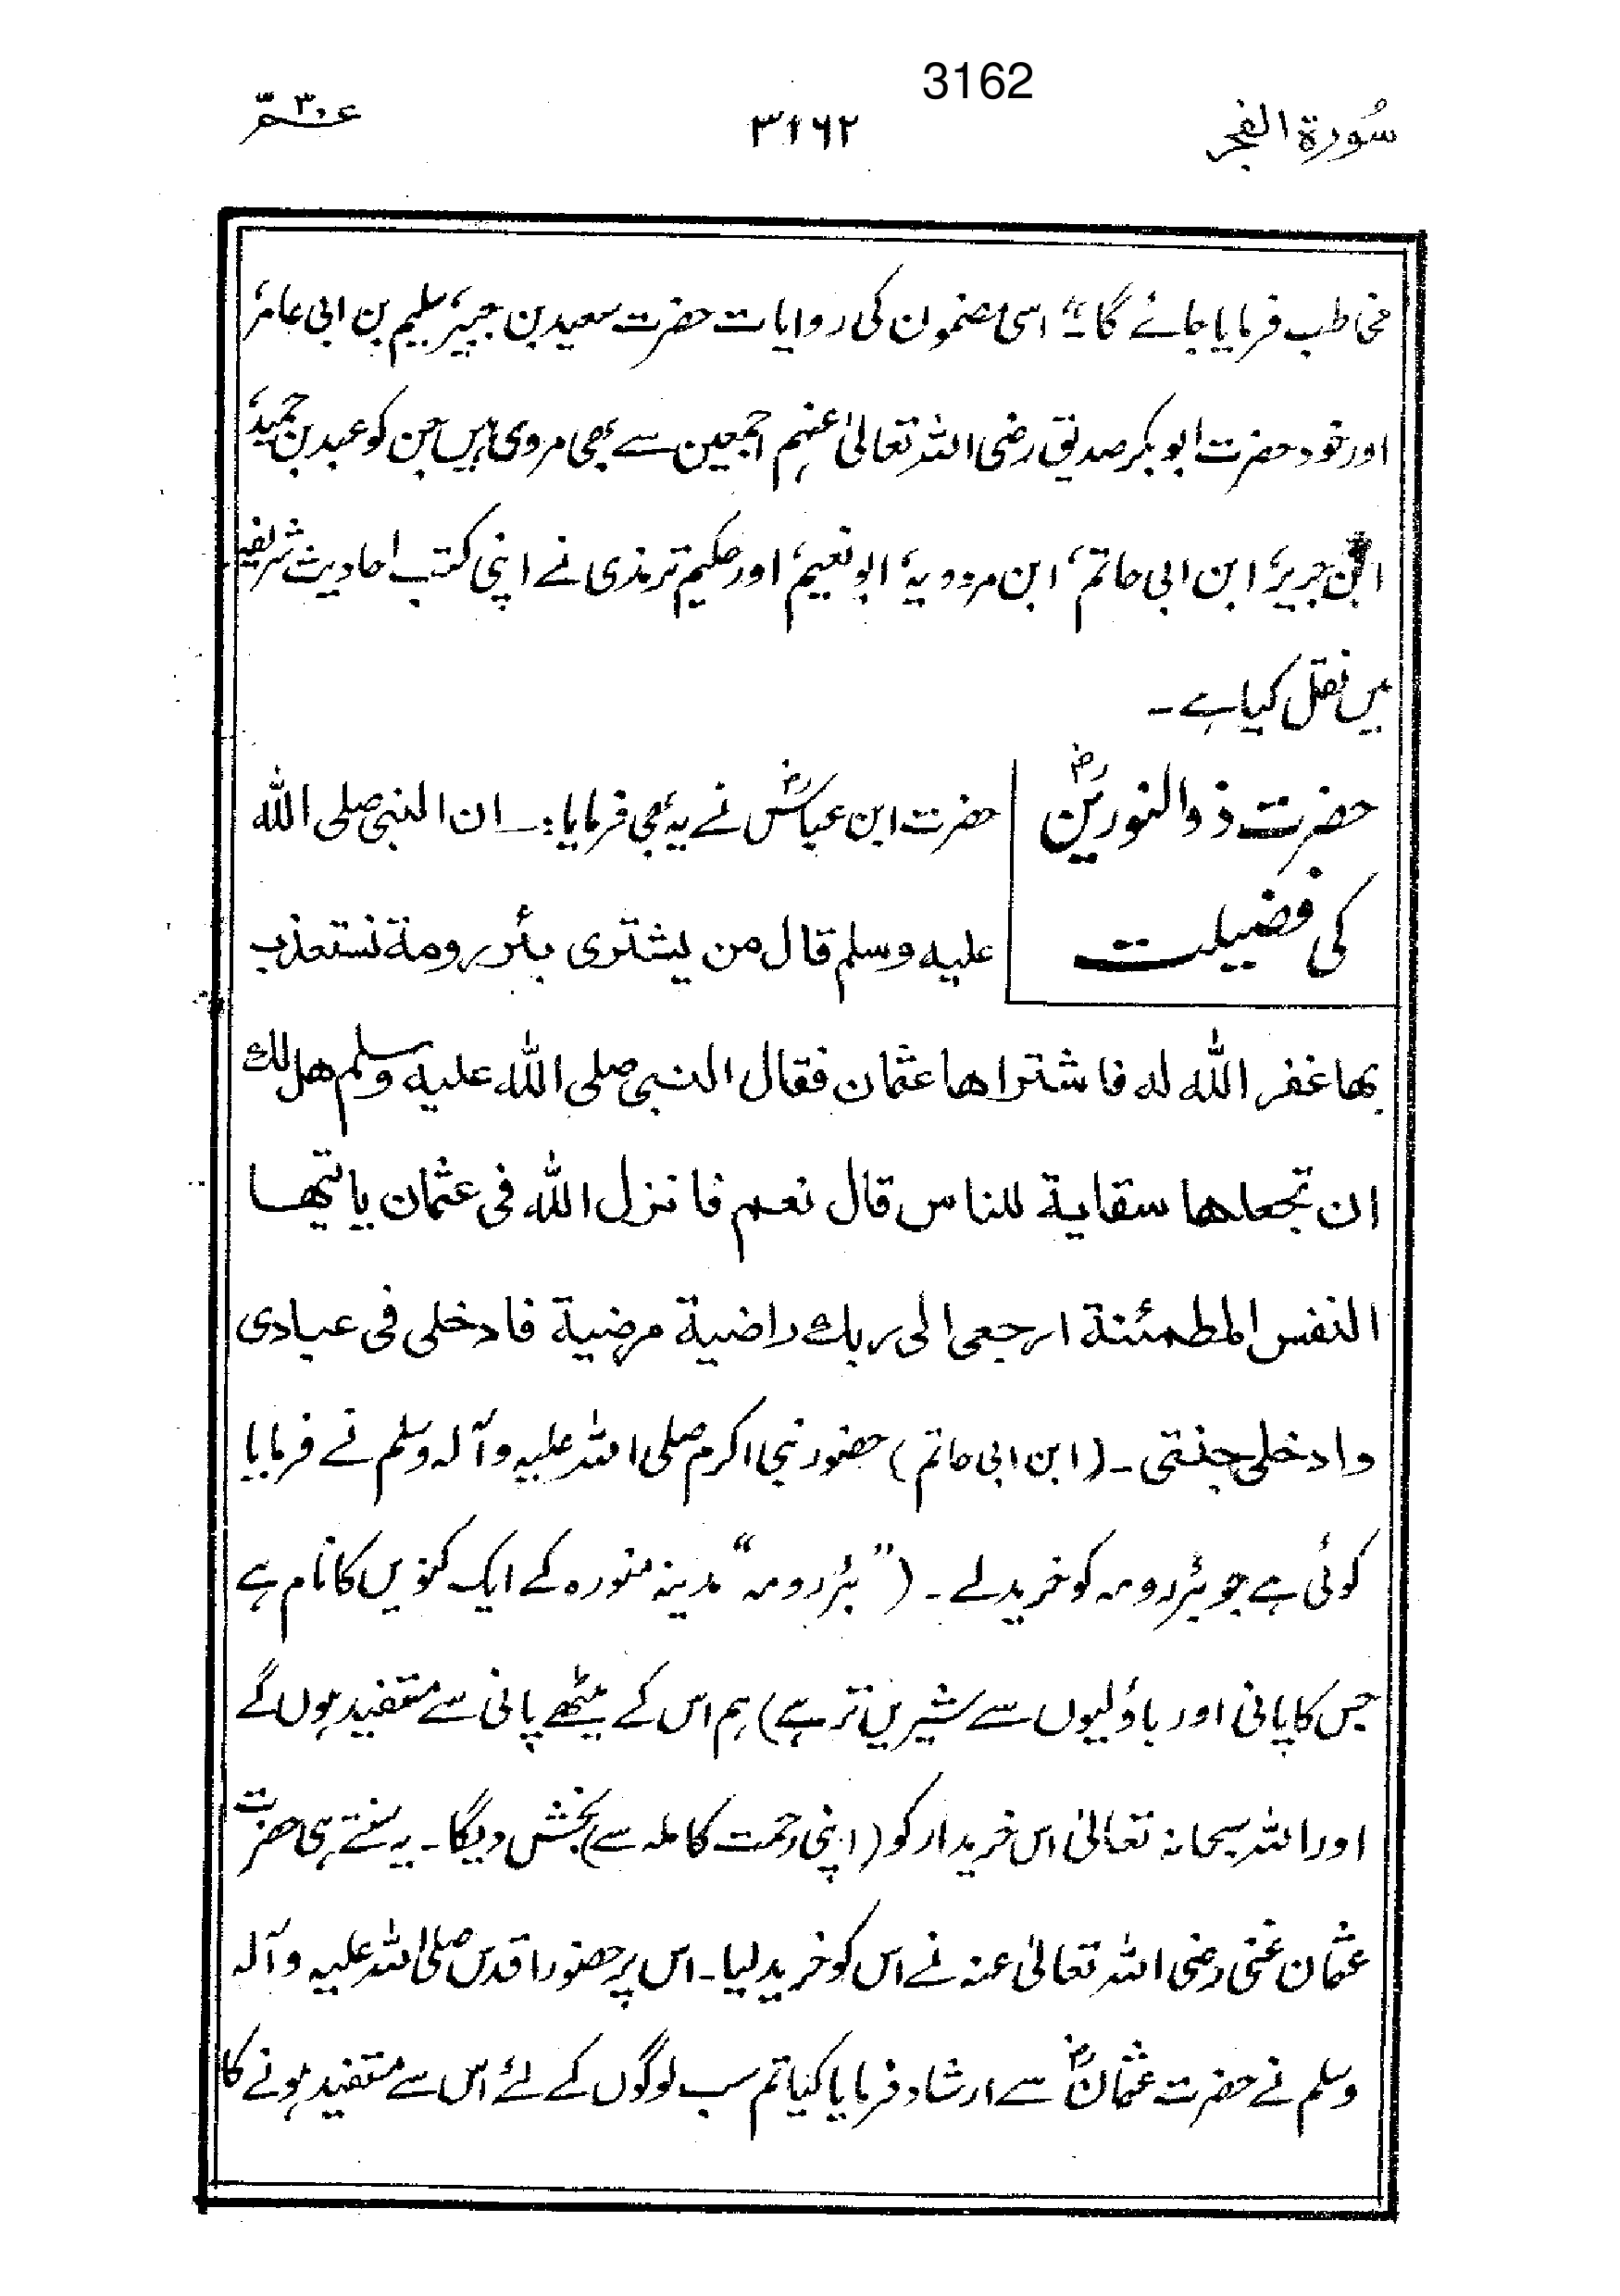 3162
سُورة الفجر ۳۱۶۲ عمّ ۳۰
مخاطب فرمایا جائے گا۔" اسی مضمون کی روایات حضرت سعید بن جبیرؒ، سلیم بن ابی عامرؒ،
اور خود حضرت ابوبکر صدیق رضی اللہ تعالیٰ عنہم اجمعین سے بھی مروی ہیں جن کو عبد بن حمیدؒ،
ابن جریرؒ، ابن ابی حاتمؒ، ابن مردویہؒ، ابو نعیمؒ، اور حکیم ترمذی نے اپنی کتب احادیث شریفہ
میں نقل کیا ہے۔
حضرت ذوالنورینؓ
کی فضیلت
حضرت ابن عباسؓ نے یہ بھی فرمایا:۔ ان النبی صلی الله
علیه وسلم قال من یشتری بئر رومة نستعذب
بها غفر الله له فاشتراها عثمان فقال النبی صلی الله علیه وسلم هل لك
ان تجعلها سقایة للناس قال نعم فانزل الله فی عثمان یایتها
النفس المطمئنة ارجعی الی ربك راضیة مرضیة فادخلی فی عبادی
وادخلی جنتی۔ (ابن ابی حاتم) حضور نبی اکرم صلی اللہ علیہ وآلہ وسلم نے فرمایا
کوئی ہے جو بئر رومہ کو خرید لے۔ ("بئر رومہ" مدینہ منورہ کے ایک کنویں کا نام ہے
جس کا پانی اور باؤلیوں سے شیریں تر ہے) ہم اس کے میٹھے پانی سے مستفید ہوں گے
اور اللہ سبحانہ تعالیٰ اس خریدار کو (اپنی رحمت کاملہ سے) بخش دیگا۔ یہ سنتے ہی حضرت
عثمان غنی رضی اللہ تعالیٰ عنہ نے اس کو خرید لیا۔ اس پر حضور اقدس صلی اللہ علیہ وآلہ
وسلم نے حضرت عثمانؓ سے ارشاد فرمایا کیا تم سب لوگوں کے لئے اس سے مستفید ہونے کا